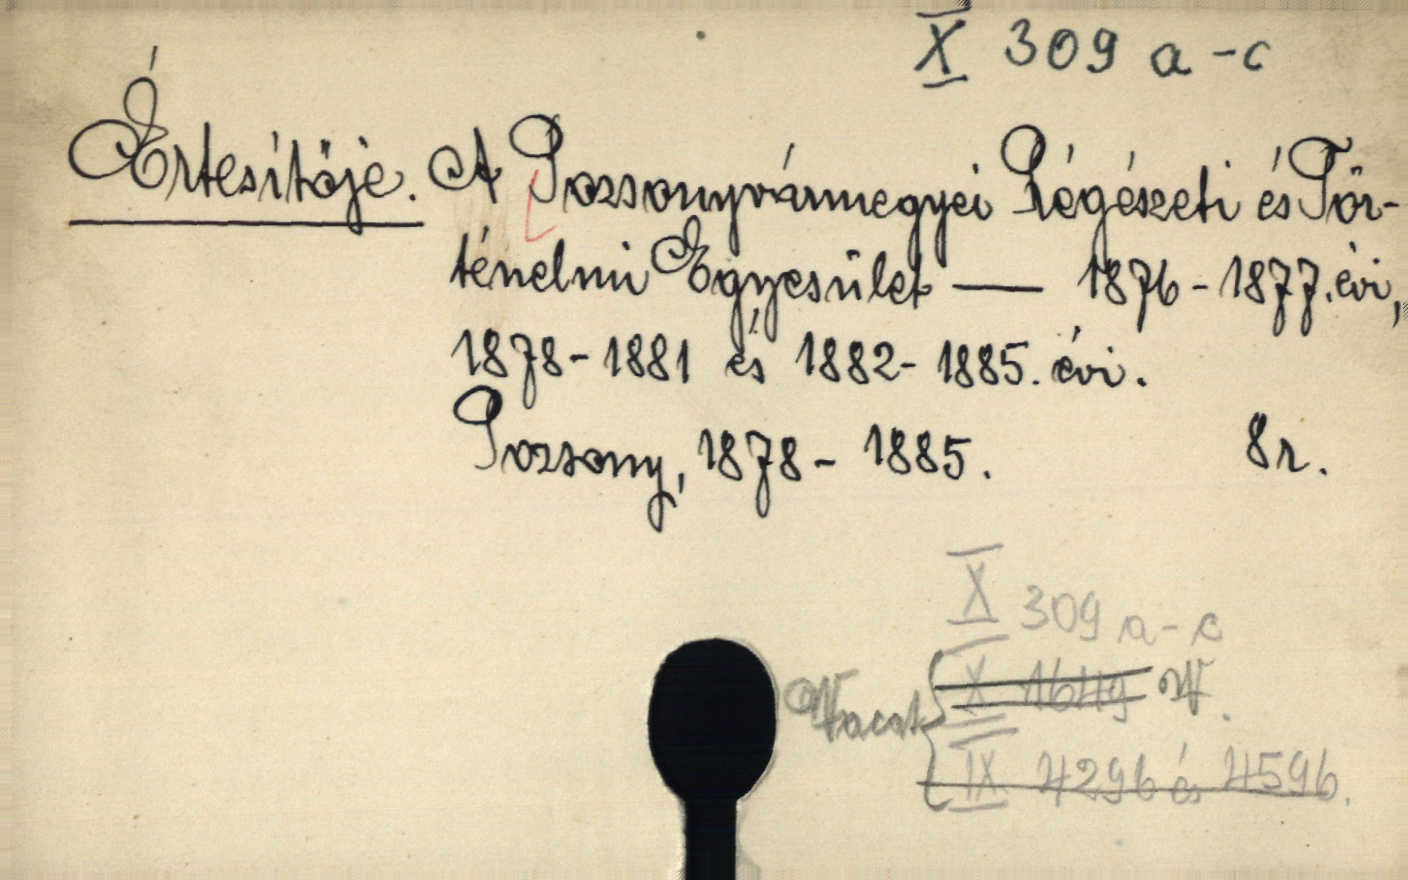 X 309 a-c
Értesítője. A Pozsonyvármegyei Régészeti és Tör-
ténelmi Egyesület — 1876-1877. évi,
1878-1881 és 1882-1885. évi.
Pozsony, 1878-1885. 8r.
X 309 a-c
Vacat { X 1649 V.
IX 4296 és 4596.